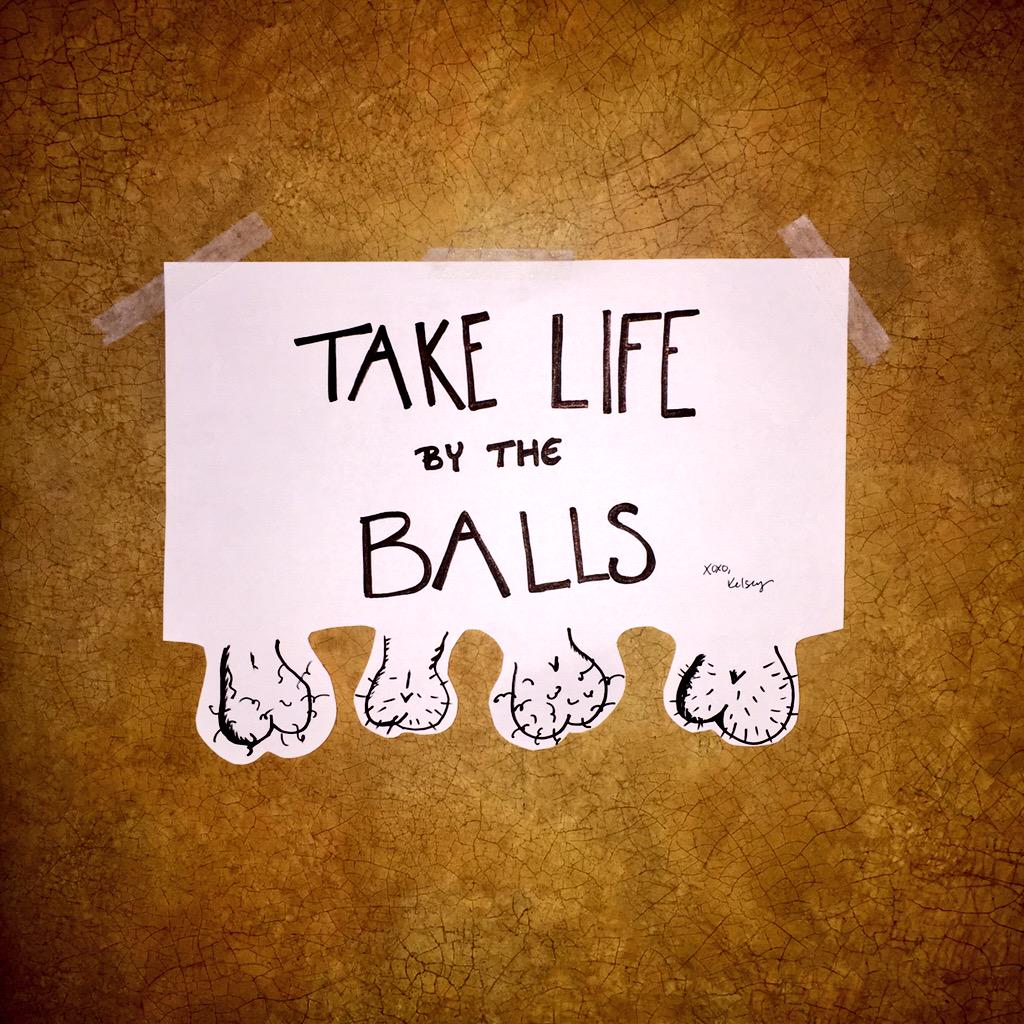 TAKE LIFE
BY THE
BALLS
XOXO,
Kelsey